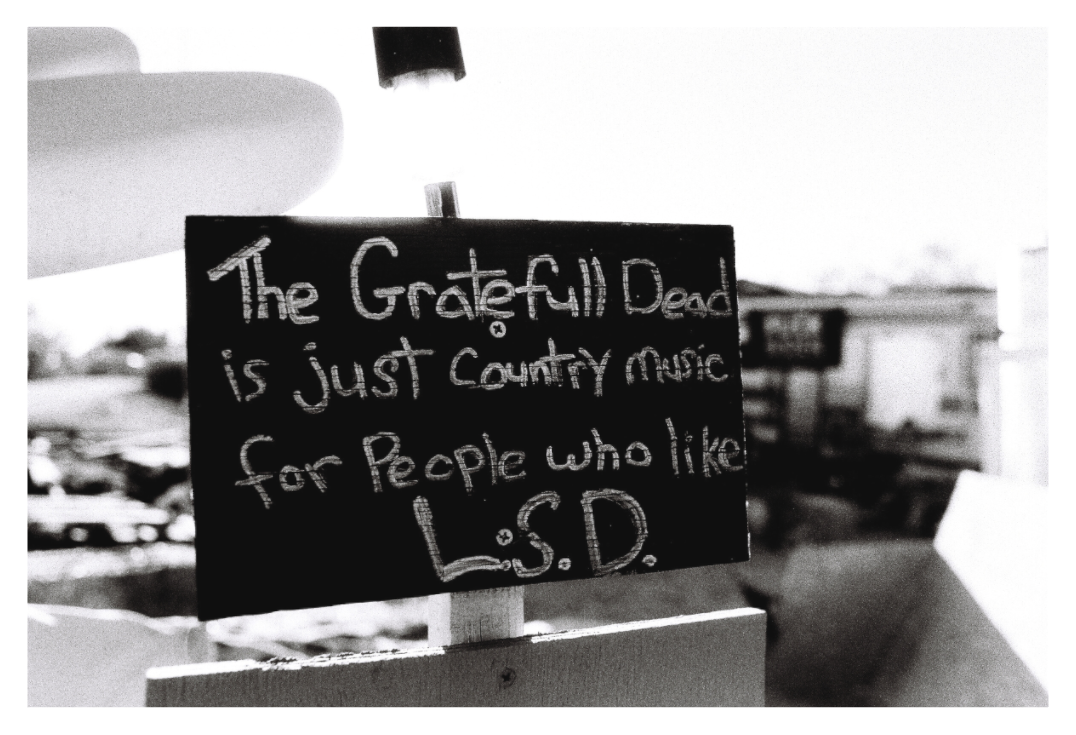 The Gratefull Dead
is just Country music
for People who like
L.S.D.